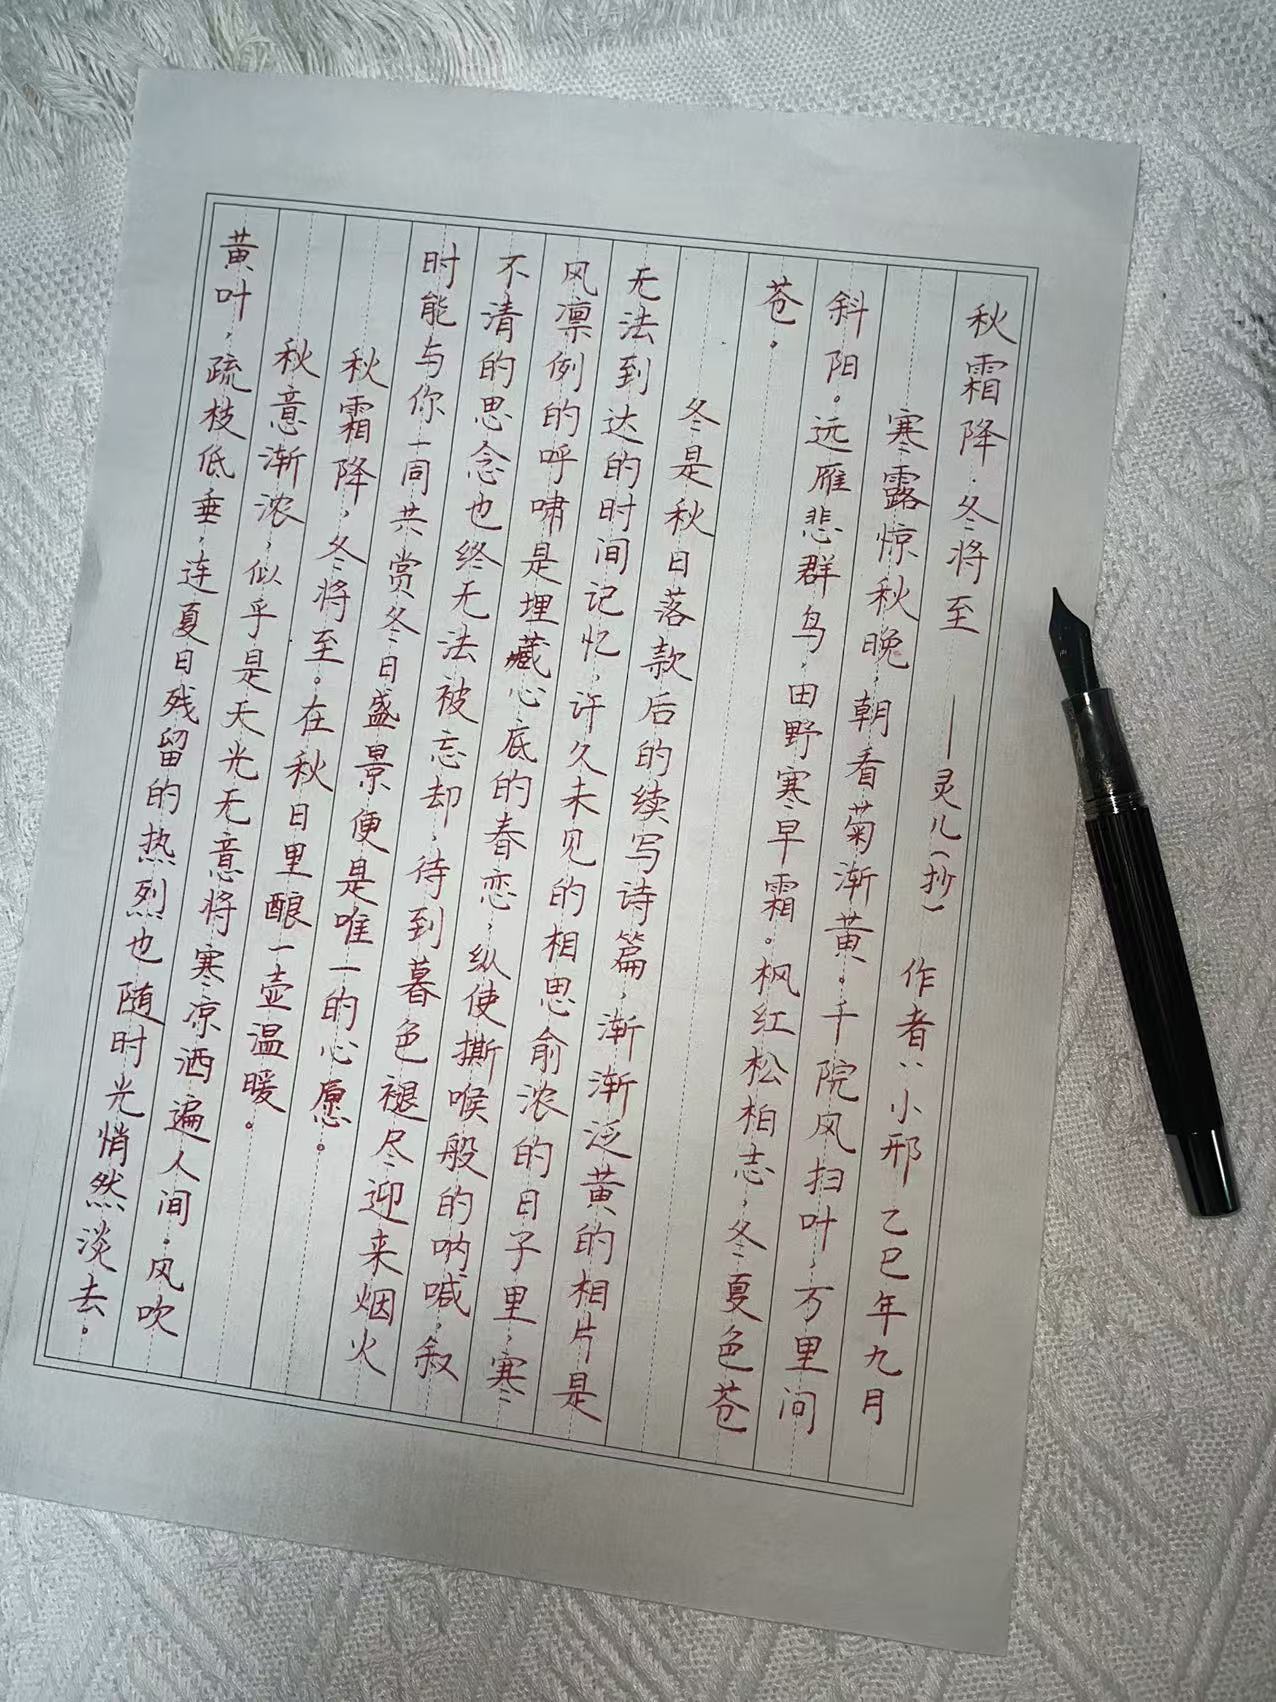 秋霜降·冬将至 ——灵儿(抄) 作者:小邪 乙巳年九月
寒露惊秋晚,朝看菊渐黄。千院风扫叶,万里问
斜阳。远雁悲群鸟,田野寒早霜。枫红松柏志,冬夏色苍
苍。
冬是秋日落款后的续写诗篇,渐渐泛黄的相片是
无法到达的时间记忆,许久未见的相思俞浓的日子里,寒
风凛例的呼啸是埋藏心底的眷恋,纵使撕喉般的呐喊。叙
不清的思念也终无法被忘却,待到暮色褪尽迎来烟火
时能与你一同共赏冬日盛景便是唯一的心愿。
秋霜降,冬将至。在秋日里酿一壶温暖。
秋意渐浓,似乎是天光无意将寒凉洒遍人间。风吹
黄叶,疏枝低垂,连夏日残留的热烈也随时光悄然淡去。